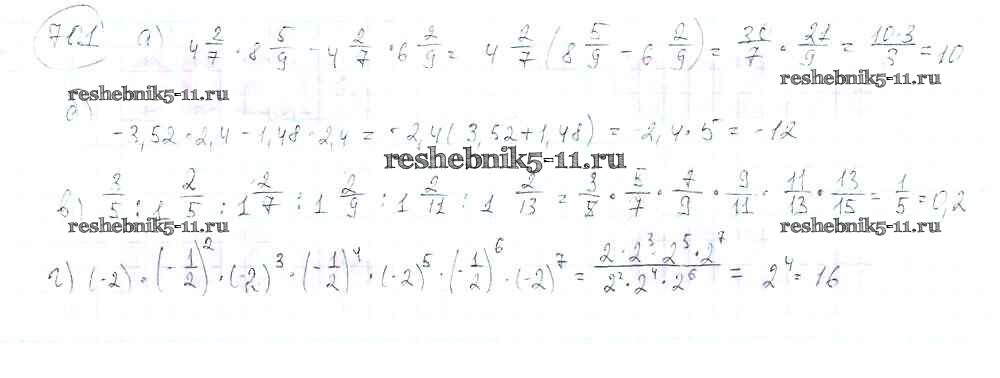 701 а) 4 2/7 · 8 5/9 - 4 2/7 · 6 2/9 = 4 2/7 (8 5/9 - 6 2/9) = 30/7 · 21/9 = 10·3/3 = 10
reshebnik5-11.ru reshebnik5-11.ru
б)
-3,52 · 2,4 - 1,48 · 2,4 = -2,4(3,52+1,48) = -2,4 · 5 = -12
reshebnik5-11.ru
в) 3/5 : 1 2/5 : 1 2/7 : 1 2/9 : 1 2/11 : 1 2/13 = 3/5 · 5/7 · 7/9 · 9/11 · 11/13 · 13/15 = 1/5 = 0,2
reshebnik5-11.ru reshebnik5-11.ru
г) (-2) · (-1/2)² · (-2)³ · (-1/2)⁴ · (-2)⁵ · (-1/2)⁶ · (-2)⁷ = 2·2³·2⁵·2⁷/2²·2⁴·2⁶ = 2⁴ = 16
reshebnik5-11.ru reshebnik5-11.ru